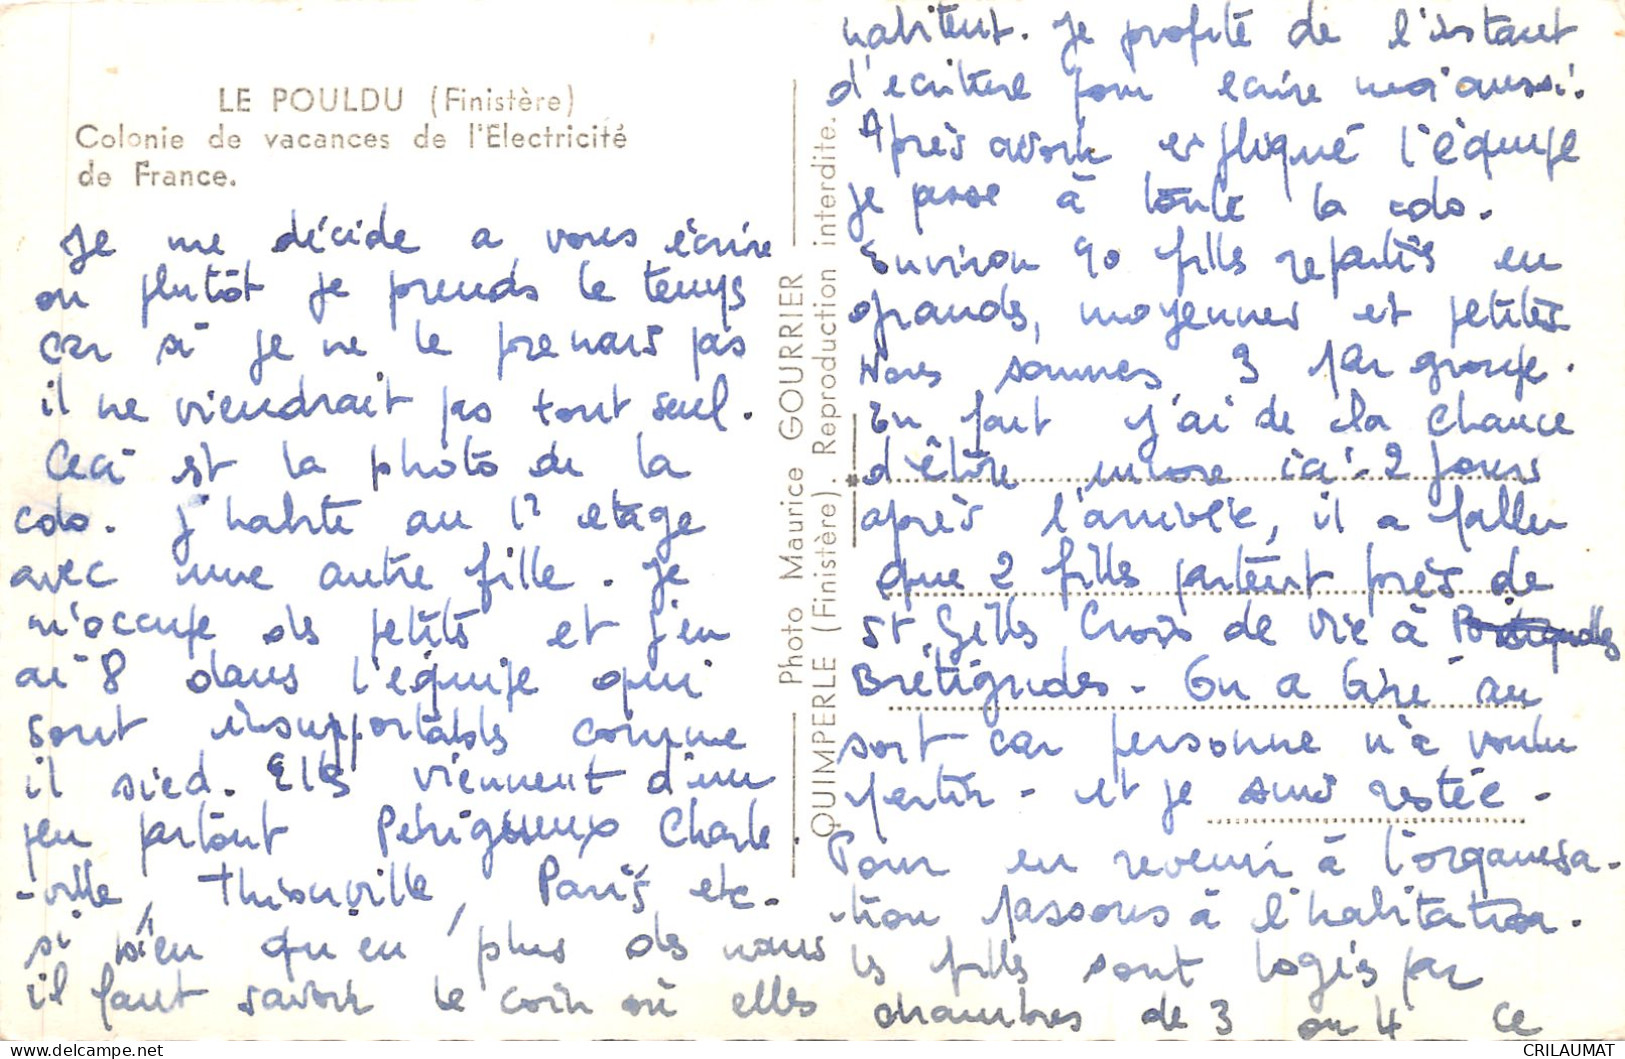 LE POULDU (Finistère)
Colonie de vacances de l'Electricité
de France.
Je me décide a vous écrire
ou plutôt je prends le temps
car si je ne le prenais pas
il ne viendrait pas tout seul.
Ceci est la photo de la
colo. J'habite au 1er etage
avec une autre fille. Je
m'occupe des petits et j'en
ai 8 dans l'équipe qui
sont insupportables comme
il sied. Elles viennent d'un
peu partout Périgueux Charle
-ville, Thionville, Paris etc.
si bien qu'en plus des noms
il faut savoir le coin où elles
habitent. Je profite de l'instant
d'ecriture pour ecrire moi aussi.
Après avoir expliqué l'équipe
je passe à toute la colo.
Environ 90 filles reparties en
grands, moyennes et petites
Nous sommes 3 par groupe.
En fait j'ai de la chance
d'être encore ici. 2 jours
après l'arrivée, il a fallu
que 2 filles partent près de
St Gilles Croix de Vie à
Brétignoles. On a tiré au
sort car personne n'a voulu
partir - et je suis restée.
Pour en revenir à l'organisa-
-tion passons à l'habitation.
les filles sont logés par
chambres de 3 ou 4 Ce
Photo Maurice GOURRIER
QUIMPERLE (Finistère). Reproduction interdite.
CRILAUMAT